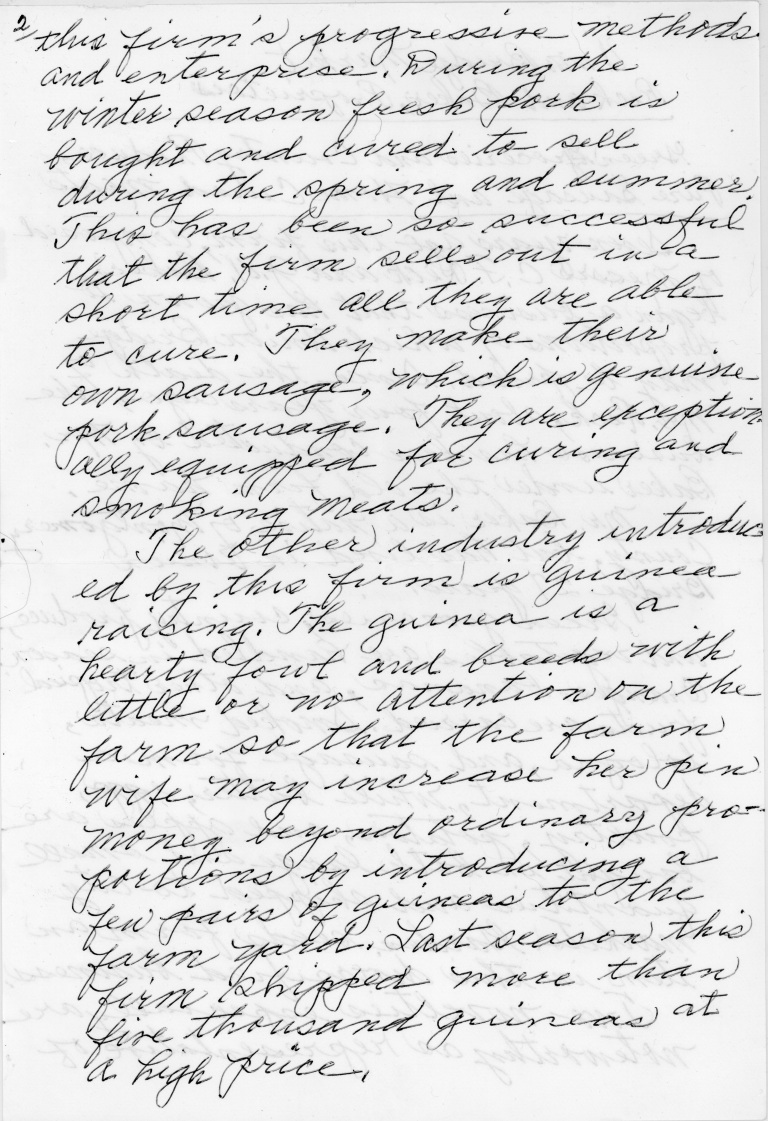 2/
this firm's progressive methods
and enterprise. During the
winter season fresh pork is
bought and cured to sell
during the spring and summer.
This has been so successful
that the firm sells out in a
short time all they are able
to cure. They make their
own sausage, which is genuine
pork sausage. They are exception-
ally equipped for curing and
smoking meats.
The other industry introduc-
ed by this firm is guinea
raising. The guinea is a
hearty fowl and breeds with
little or no attention on the
farm so that the farm
wife may increase her pin
money beyond ordinary pro-
portions by introducing a
few pairs of guineas to the
farm yard. Last season this
firm shipped more than
five thousand guineas at
a high price.